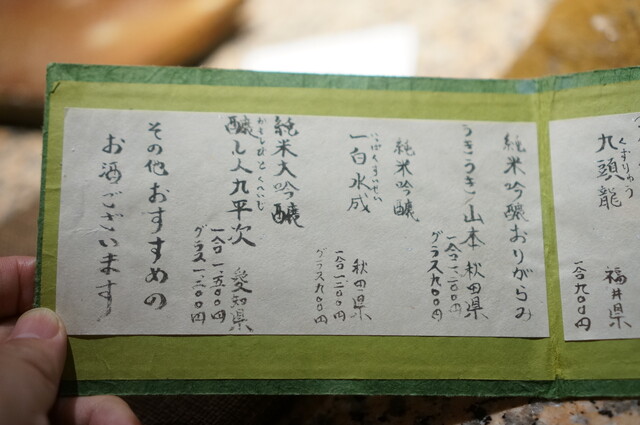 九頭龍
くずりゅう
福井県
一合九〇〇円
純米吟醸おりがらみ
うきうき山本 秋田県
一合一二〇〇円
グラス九〇〇円
純米吟醸
一白水成
いっぱくすいせい
秋田県
一合一二〇〇円
グラス九〇〇円
純米大吟醸
醸し人九平次
かもしびと くへいじ
愛知県
一合一、五〇〇円
グラス一、二〇〇円
その他おすすめの
お酒ございます